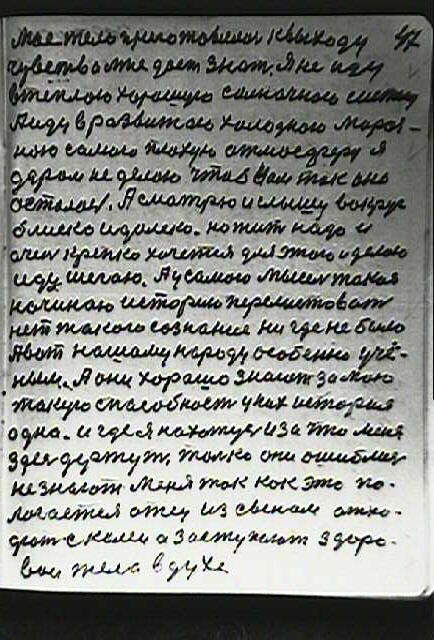 47
Мое тело приготовелос к выходу
чуветво мне дает знат. Я не иду
в тёплою хорошую солначною систему
Я иду в развитаю холодною мороз-
ною самою плохую атмосдгеру я
даром не делаю чтоб Вам так оно
осталос. А сматрю и слышу вокруг
блиско и далеко. но жит надо и
очен крепко хочется для этого и делаю
иду шегаю. А у самого мысел такая
начинаю историю перелистоват
нет такого сознания ни где не было
А вот нашому народу особенно учё-
ным. А они хорошо знают за мою
такую способност у них история
одна. и где я нахожус и за что меня
здес держут. толко они ошиблис
не знают меня так как это по-
логается а жег из свеном отхо-
дят с колеи а заступают здоро-
вои тела в духе